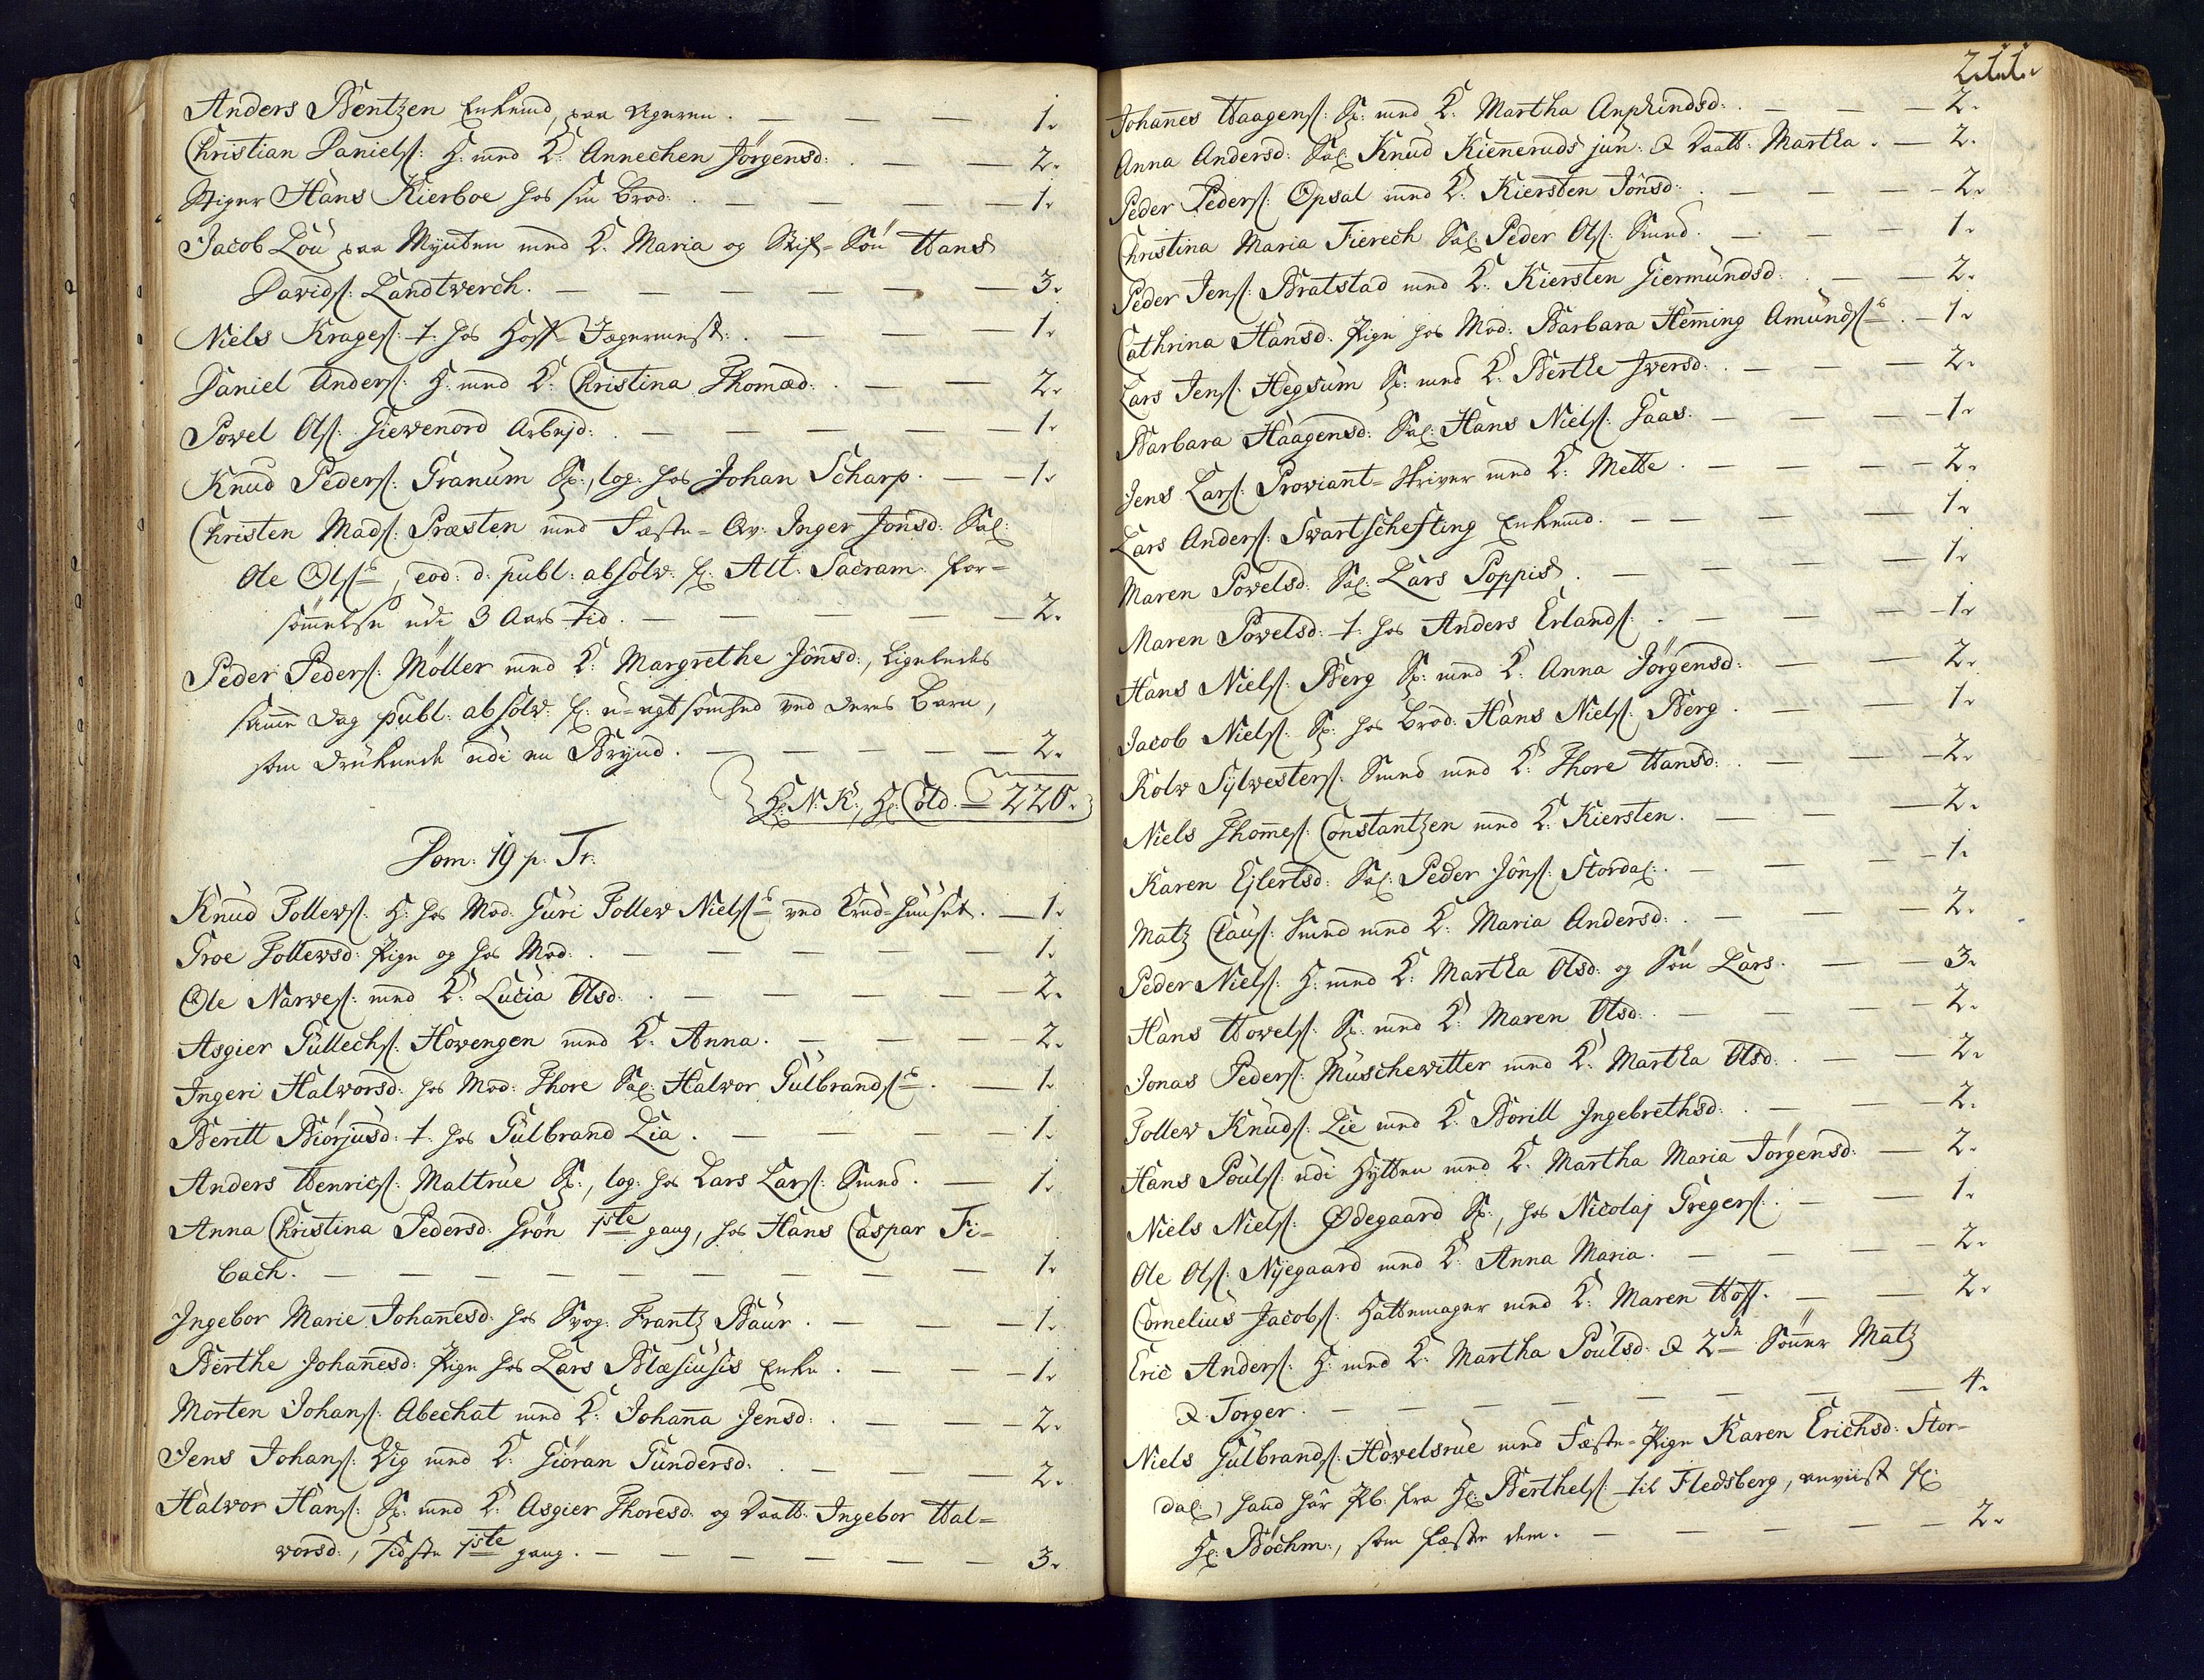 Anders Bentzen Enkemd, paa Ageren. 1.
Christian Daniels: H. med K: Annechen Jörgensd: 2.
Stiger Hans Kierboe hos sin Brod: 1.
Jacob Lou paa Mynten med K. Maria og Stif-Sön Hans
Davids: Landtwerch. 3.
Niels Krages: t: hos Hoff-Jægermest: 1.
Daniel Anders: H. med K: Christina Thomæd: 2.
Powel Ols: Giewenord Arbejd: 1.
Knud Peders: Granum Sp:, log: hos Johan Scharp. 1.
Christen Mads: Præsten med Fæste-Qv: Inger Jönsd: Sal:
Ole Ols:, eod: d: publ: absolv: f: Alt: Sacram: for-
sömmelse udi 3 Aars tid. 2.
Peder Peders: Möller med K: Margrethe Jönsd:, Ligeledes
samme Dag publ: absolv: f: u-agtsomhed ved deres Barn,
som druknede udi en Brynd. 2.
H: N: K:, H: Cold. 220.
Dom: 19 p. Tr.
Knud Tollews: H: hos Mod: Guri Tollew Niels: ved Krud-huuset. 1.
Groe Tollewsd: Pige og hos Mod: 1.
Ole Narwes: med K: Lucia Olsd: 2.
Asgier Gullechs: Howengen med K: Anna. 2.
Ingeri Halworsd: hos Mod: Thore Sal: Halwor Gulbrands: 1.
Beritt Biörjusd: t: hos Gulbrand Lia. 1.
Anders Henrics: Maltrue Sp:, log: hos Lars Lars: Smed. 1.
Anna Christina Pedersd: Grön 1ste gang, hos Hans Caspar Fi-
bach. 1.
Ingebor Marie Johannesd: hos Svog: Frantz Baur. 1.
Berthe Johannesd: Pige hos Lars Blæsiusis Enke. 1.
Morten Johans: Abechat med K: Johanna Jensd: 2.
Jens Johans: Vig med K: Giöran Gundersd: 2.
Halvor Hans: Sp: med K: Asgier Thoresd: og Daatt: Ingebor Hal-
vorsd:, sidste 1ste gang. 3.
211.
Johannes Haagens: Sp: med K: Martha Anphindsd: 2.
Anna Andersd: Sal: Knud Kienneruds jun: & Daatt: Martha. 2.
Peder Peders: Opsal med K: Kiersten Jönsd: 2.
Christina Maria Fierech Sal: Peder Ols: Smed. 1.
Peder Jens: Bratstad med K: Kiersten Giermundsd: 2.
Cathrina Hansd: Pige hos Mod: Barbara Hemming Amunds: 1.
Lars Jens: Hegsum Sp: med K: Berthe Iversd: 2.
Barbara Haagensd: Sal: Hans Niels: Gaas. 1.
Jens Lars: Proviant-Skriver med K: Mette. 2.
Lars Anders: Swartschefting Enkemd. 1.
Maren Powelsd: Sal: Lars Poppis. 1.
Maren Powelsd: t: hos Anders Erlands: 1.
Hans Niels: Berg Sp: med K: Anna Jörgensd: 2.
Jacob Niels: Sp: hos Brod: Hans Niels: Berg. 1.
Rolv Sylwesters: Smed med K: Thore Hansd: 2.
Niels Thommes: Constantzen med K: Kiersten. 2.
Karen Ejlertsd: Sal: Peder Jöns: Stordal: 1.
Matz Claus: Smed med K: Maria Andersd: 2.
Peder Niels: H: med K: Martha Olsd: og Sön Lars. 3.
Hans Howels: Sp: med K: Maren Olsd: 2.
Jonas Peders: Muschewitter med K: Martha Olsd: 2.
Tollew Knuds: Lie med K: Borill Ingebrethsd: 2.
Hans Pouls: udi Hytten med K: Martha Maria Jörgensd: 2.
Niels Niels: Ødegaard Sp:, hos Nicolaj Gregers: 1.
Ole Ols: Nyegaard med K: Anna Maria. 2.
Cornelius Jacobs: Hattemager med K: Maren Hoff. 2.
Eric Anders: H: med K: Martha Poulsd: & 2de Sönner Matz
& Torger. 4.
Niels Gulbrands: Howelsrue med Fæste-Pige Karen Erichsd: Stor-
dal:, hand hår Pb: fra H: Berthels: til Fledsberg, anviist f:
H: Böchm:, som fæste dem. 2.